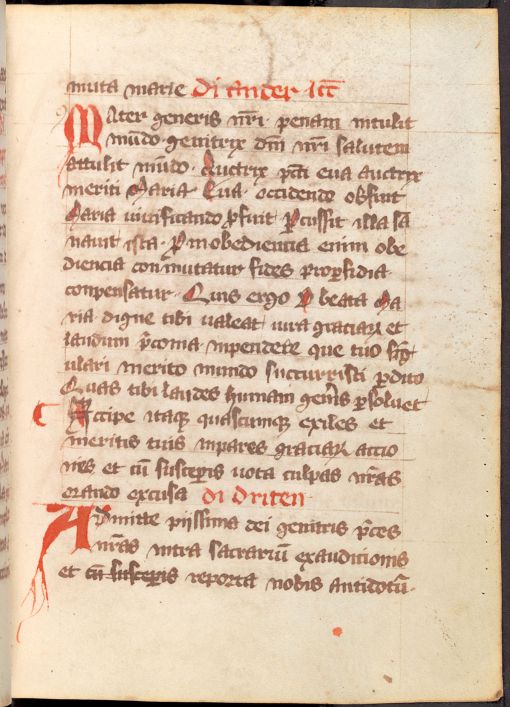 muta marie Di ander lcc̄
Mater generis nr̄i · penam intulit
mūdo · genitrix dn̄i nr̄i salutem
attulit mūdo · Auctrix pcc̄i eua auctrix
meriti Maria Eua · occidendo obfuit
Maria uiuificando ꝓfuit Ꝑcussit illa sā
nauit ista · Pro inobediencia enim obe
diencia conmutatur fides pro ꝑfidia
conpensatur · Quis ergo O beata Ma
ria digne tibi ualeat iura graciaꝝ et
laudum p̄conia inpendere que tuo sīgu
ulari merito mundo succurristi ꝑdito
Quas tibi laudes humani genꝰis ꝑsoluet
Accipe itaqꝫ quascumqꝫ exiles et
meritis tuis inpares graciaꝝ actio
nes et cū susceꝑis uota culpas nr̄as
orando excusa di driten
Admitte piissima dei genitris p̄ces
nr̄as intra sacrariū exauditionis
et cū susceꝑis reporta nobis antidotū ·